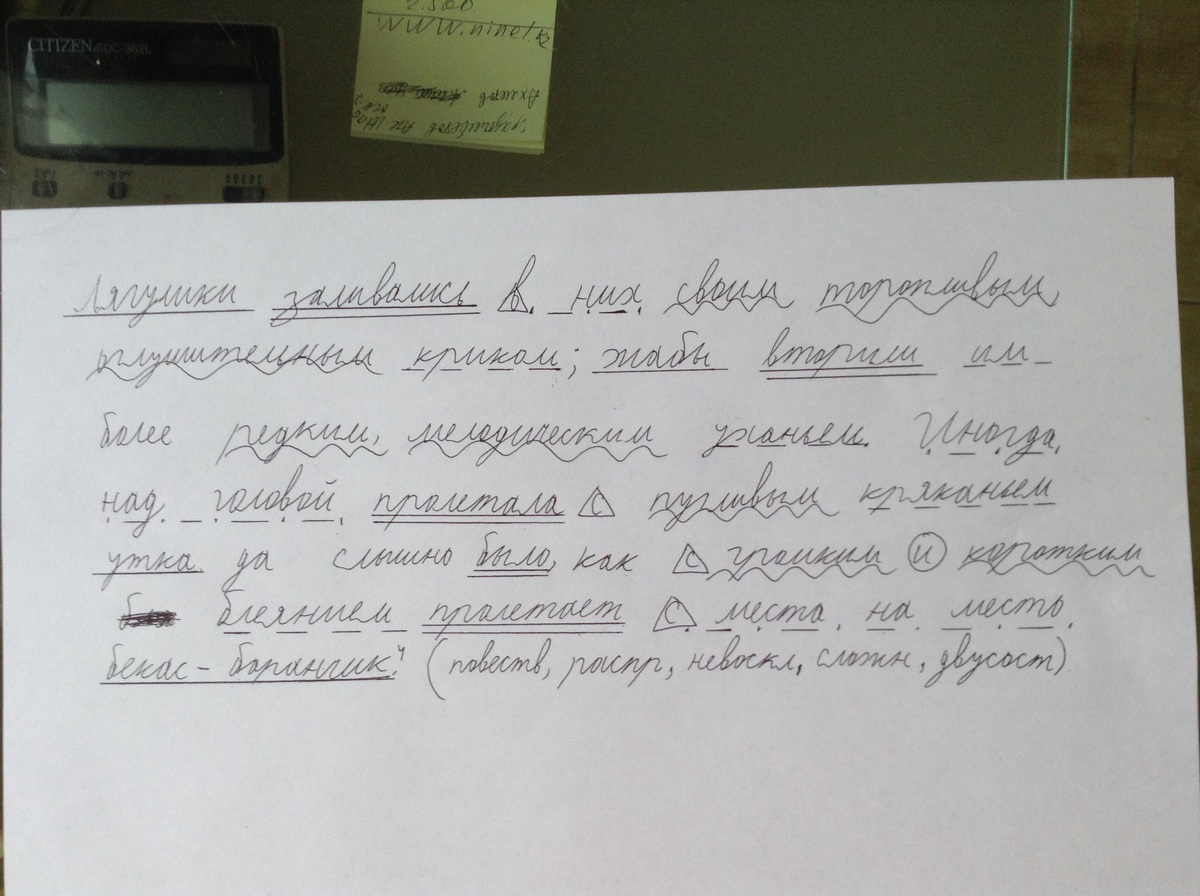 CITIZEN SDC 362L
2.500.
WWW.ninel.kz
Лягушки заливались в них своим торопливым,
оглушительным криком; жабы вторили им
более редким, мелодическим уханьем. Иногда,
над головой, пролетала с пугливым кряканьем
утка, да слышно было, как с громким и коротким
блеянием пролетает с места на место
бекас-барангик." (повеств, распр, невоскл, сложн, двусост)